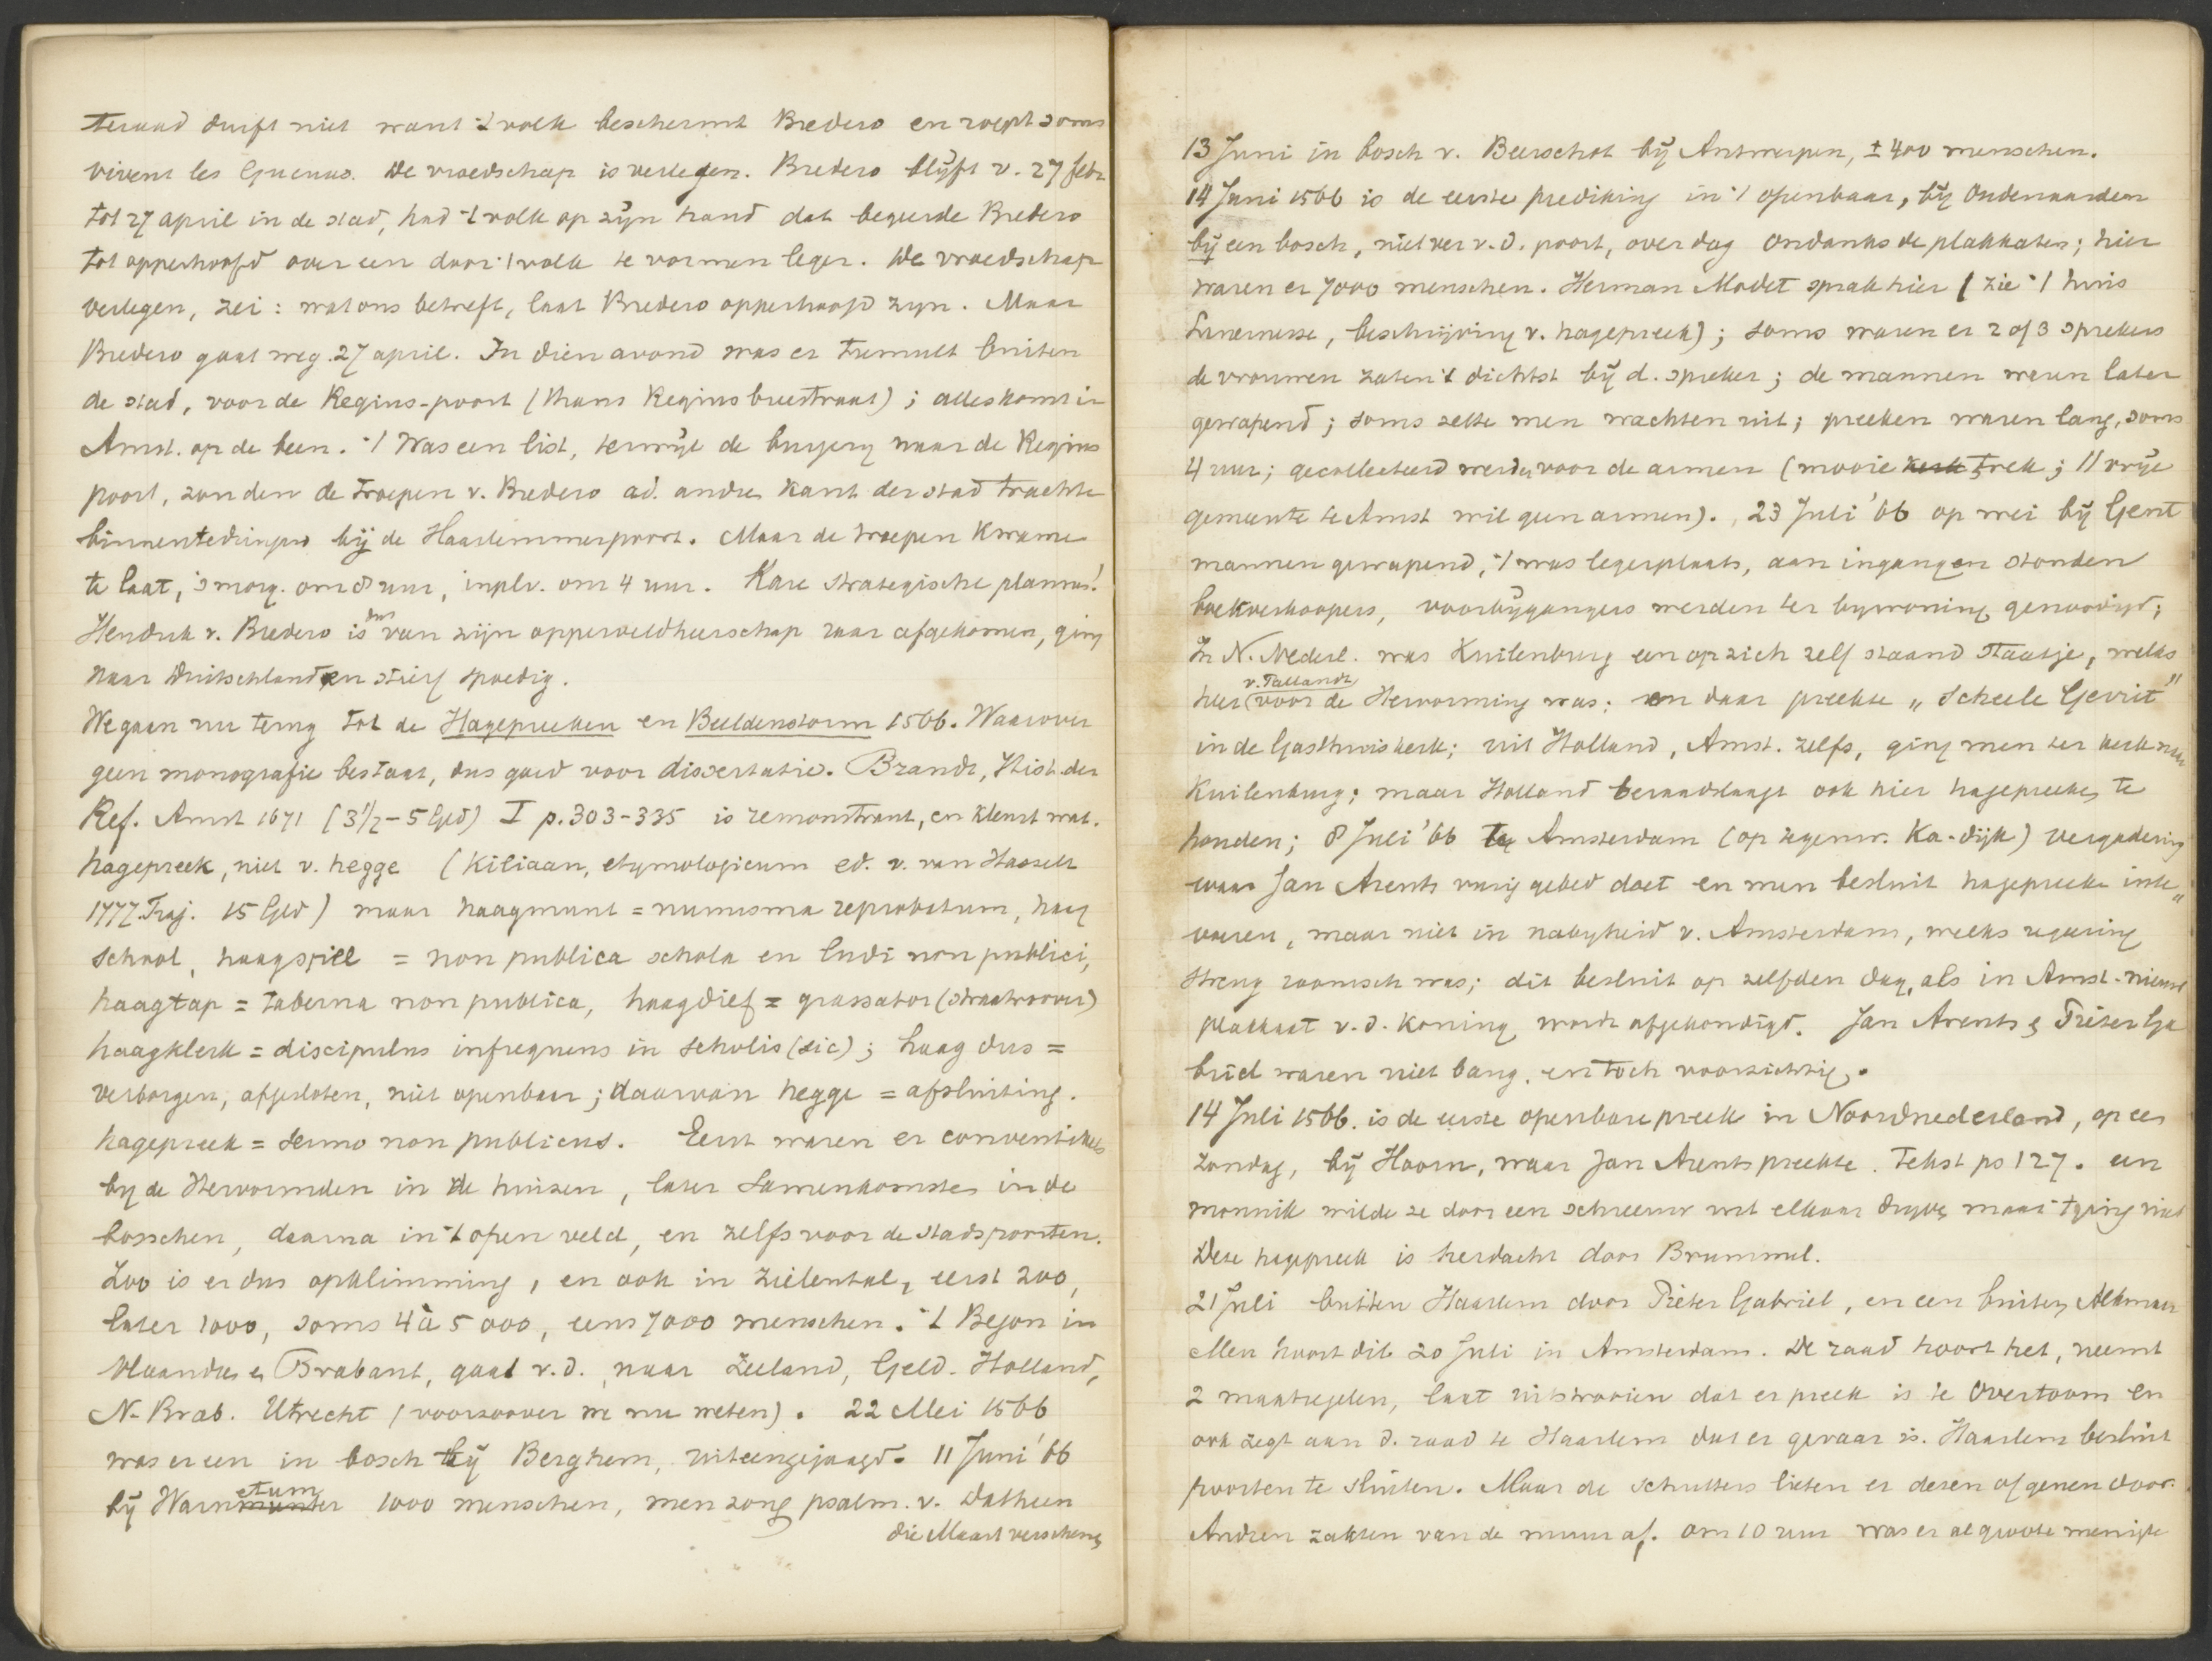 teraad durft niet want 't volk beschermt Bredero en roept soms
vivent les Gueux. De vroedschap is verlegen. Bredero blijft v. 27 febr
tot 27 april in de stad, had 't volk op zijn hand dat begeerde Bredero
tot opperhoofd over een door 't volk te vormen leger. De vroedschap
verlegen, zei: wat ons betreft, laat Bredero opperhoofd zijn. Maar
Bredero gaat weg 27 april. In dien avond was er tumult buiten
de stad, voor de Regius-poort (thans Regius breestraat); alles komt in
Amst. op de been. 't Was een list, terwijl de burgerij naar de Regius
poort, zouden de troepen v. Bredero ad. andre kant der stad trachte
binnentedringen bij de Haarlemmerpoort. Maar de troepen kwamen
te laat, 's morg. om 8 uur, in pl. v. om 4 uur. Rare strategische plannen!
Hendrik v. Bredero is dus van zijn opperveldheerschap raar afgekomen, ging
naar Duitschland en stierf spoedig.
We gaan nu terug tot de Hagepreeken en Beeldenstorm 1566. Waarover
geen monografie bestaat, dus goed voor dissertatie. Brandt, Hist. der
Ref. Amst 1671 (3½-5 Gld) I p. 303-335 is remonstrant, en kleurt wat.
hagepreek, niet v. hegge (Kiliaan, etymologicum ed. v. van Hasselt
1777. Traj. 15 Gld) maar haagmunt = numisma reprobatum, haag
school, haagspill = non publica schola en ludi non publici,
haagtap = taberna non publica, haagdief = grassator (straatroover)
haagklerk = discipulus infrequens in scholis (sic); haag dus =
verborgen, afgesloten, niet openbaar; daarvan hegge = afsluiting.
hagepreek = sermo non publicus. Eerst waren er conventikels
bij de Hervormden in de huizen, later samenkomsten in de
bosschen, daarna in 't open veld, en zelfs voor de stadspoorten.
Zoo is er dus opklimming, en ook in zielental, eerst 200,
later 1000, soms 4 à 5000, eens 7000 menschen. 't Begon in
Vlaandren en Brabant, gaat v.d. naar Zeeland, Geld. Holland,
N-Brab. Utrecht (voorzoover we nu weten). 22 Mei 1566
was er een in bosch bij Berghem, uiteengejaagd. 11 Juni '66
bij Warnmunster etum 1000 menschen, men zong psalm. v. Datheen
die Maart verschenen
13 Juni in bosch v. Beerschot bij Antwerpen, ± 400 menschen.
14 Juni 1566 is de eerste prediking in 't openbaar, bij Oudenaarden
bij een bosch, niet ver v.d. poort, over dag ondanks de plakkaten; hier
waren er 7000 menschen. Herman Modet sprak hier (zie 't huis
Lauernesse, beschrijving v. hagepreek); soms waren er 2 of 3 sprekers
de vrouwen zaten 't dichtst bij d. spreker; de mannen waren later
gewapend; soms zette men wachten uit; preeken waren lang, soms
4 uur; gecollecteerd werd er voor de armen (mooie kerk trek; 11 vrije
gemeente te Amst wil geen armen). 23 Juli '66 op wei bij Gent
mannen gewapend, 't was legerplaats, aan ingangen stonden
boekverkoopers, voorbijgangers werden ter bijwoning genoodigd;
In N. Nederl. was Kuilenburg een op zich zelf staand staatje, welks
heer v. Pallandt voor de Hervorming was; en daar preekte „Scheele Gerrit"
in de Gasthuiskerk; uit Holland, Amst. zelfs, ging men ter kerk naar
Kuilenburg; maar Holland beraadslaagt ook hier hagepreeken te
houden; 8 Juli '66 te Amsterdam (op tegenw. Ka-dijk) vergadering
waar Jan Arents vurig gebed doet en men besluit hagepreeke inte„
voeren, maar niet in nabijheid v. Amsterdam, welks regeering
streng roomsch was; dit besluit op zelfden dag, als in Amst. nieuw
plakkaat v.d. koning wordt afgekondigd. Jan Arents & Pieter Ga
briel waren niet bang, en toch voorzichtig.
14 Juli 1566. is de eerste openbare preek in Noordnederland, op een
zondag, bij Hoorn, waar Jan Arents preekte. Tekst ps 127. een
monnik wilde ze door een schreeuw uit elkaar drijven maar 't ging niet
Deze hagepreek is herdacht door Brummel.
21 Juli buiten Haarlem door Pieter Gabriel, en een buiten Alkmaar
Men hoort dit 20 Juli in Amsterdam. De raad hoort het, neemt
2 maatregelen, laat uitstrooien dat er preek is te Overtoom en
ook zegt aan d. raad te Haarlem dat er gevaar is. Haarlem besluit
poorten te sluiten. Maar de schutters lieten er dezen of genen door.
Andren zakten van de muur af. om 10 uur was er al groote menigte